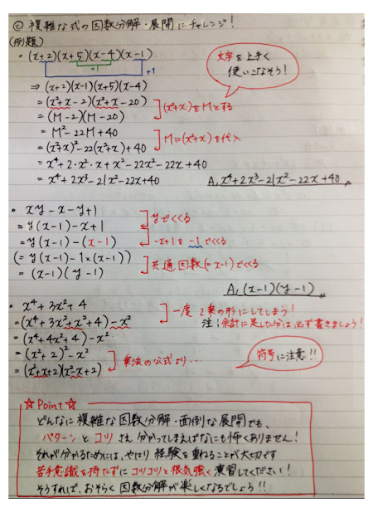 ◎ 複雑な式の因数分解・展開にチャレンジ！
(例題)
・(x+2)(x+5)(x-4)(x-1)
+1
+1
文字を上手く
使いこなそう！
⇒ (x+2)(x-1)(x+5)(x-4)
= (x²+x-2)(x²+x-20)
(x²+x)をMとする
= (M-2)(M-20)
= M²-22M+40
Mに(x²+x)を代入
= (x²+x)²-22(x²+x)+40
= x⁴+2・x²・x+x²-22x²-22x+40
= x⁴+2x³-21x²-22x+40
A. x⁴+2x³-21x²-22x+40
・ xy-x-y+1
yでくくる
= y(x-1)-x+1
-x+1を-1でくくる
= y(x-1)-(x-1)
(= y(x-1)-1×(x-1))
共通因数(=x-1)でくくる
= (x-1)(y-1)
A. (x-1)(y-1)
・ x⁴+3x²+4
一度2乗の形にしてしまう！
= (x⁴+3x²+x²+4)-x²
注：余計に足した分は必ず書きましょう！
= (x⁴+4x²+4)-x²
= (x²+2)²-x²
乗法の公式より…
符号に注意!!
= (x²+x+2)(x²-x+2)
☆Point☆
どんなに複雑な因数分解・面倒な展開でも、
パターンとコツさえ分かってしまえばなにも怖くありません！
それが分かるためには、やはり経験を重ねることが大切です
苦手意識を持たずにコツコツと根気強く演習してください！
そうすれば、おそらく因数分解が楽しくなるでしょう!!